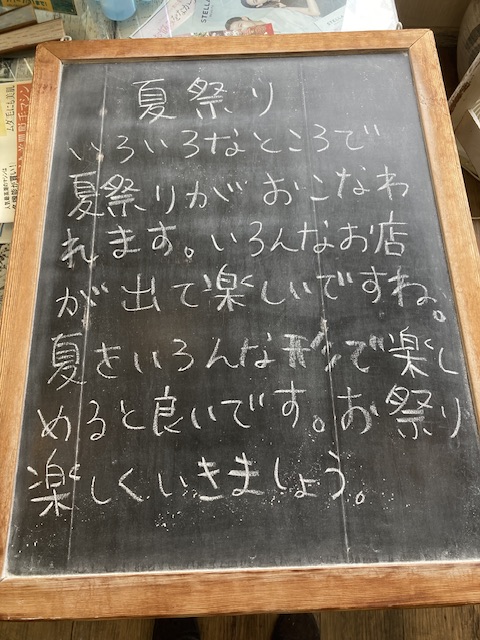 夏祭り
いろいろなところで
夏祭りがおこなわ
れます。いろんなお店
が出て楽しいですね。
夏をいろんな形で楽し
めると良いです。お祭り
楽しくいきましょう。
STELLA